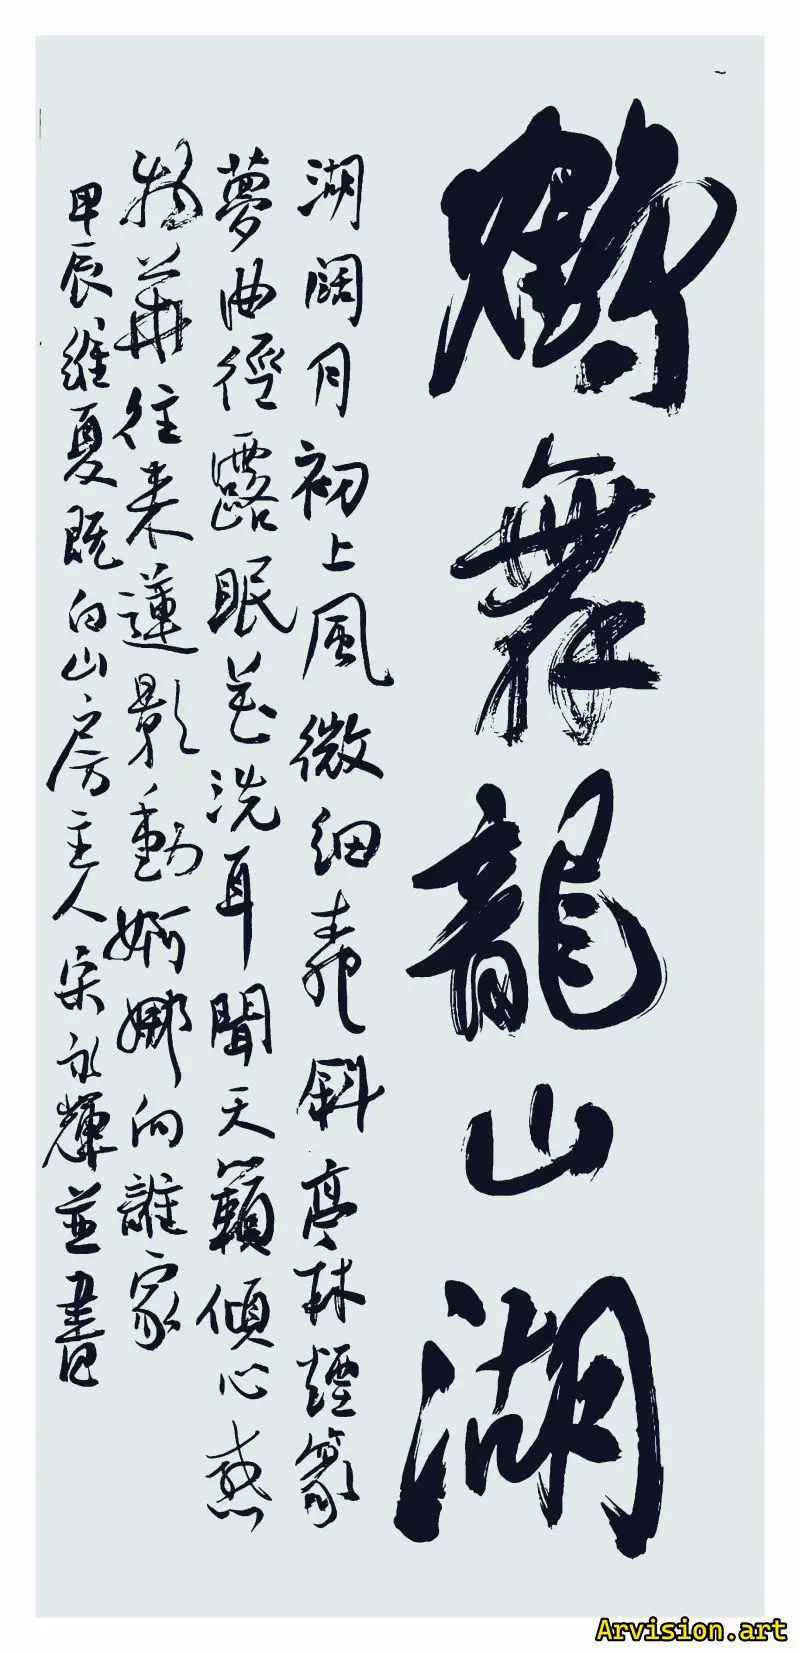 舞龍山湖
湖闊月初上風微細斜亭林煙篆
夢曲徑露眠花洗耳聞天籟傾心感
物華往來蓮影動婀娜向誰家
甲辰維夏既白山房主人宋永輝並書
Arvision.art